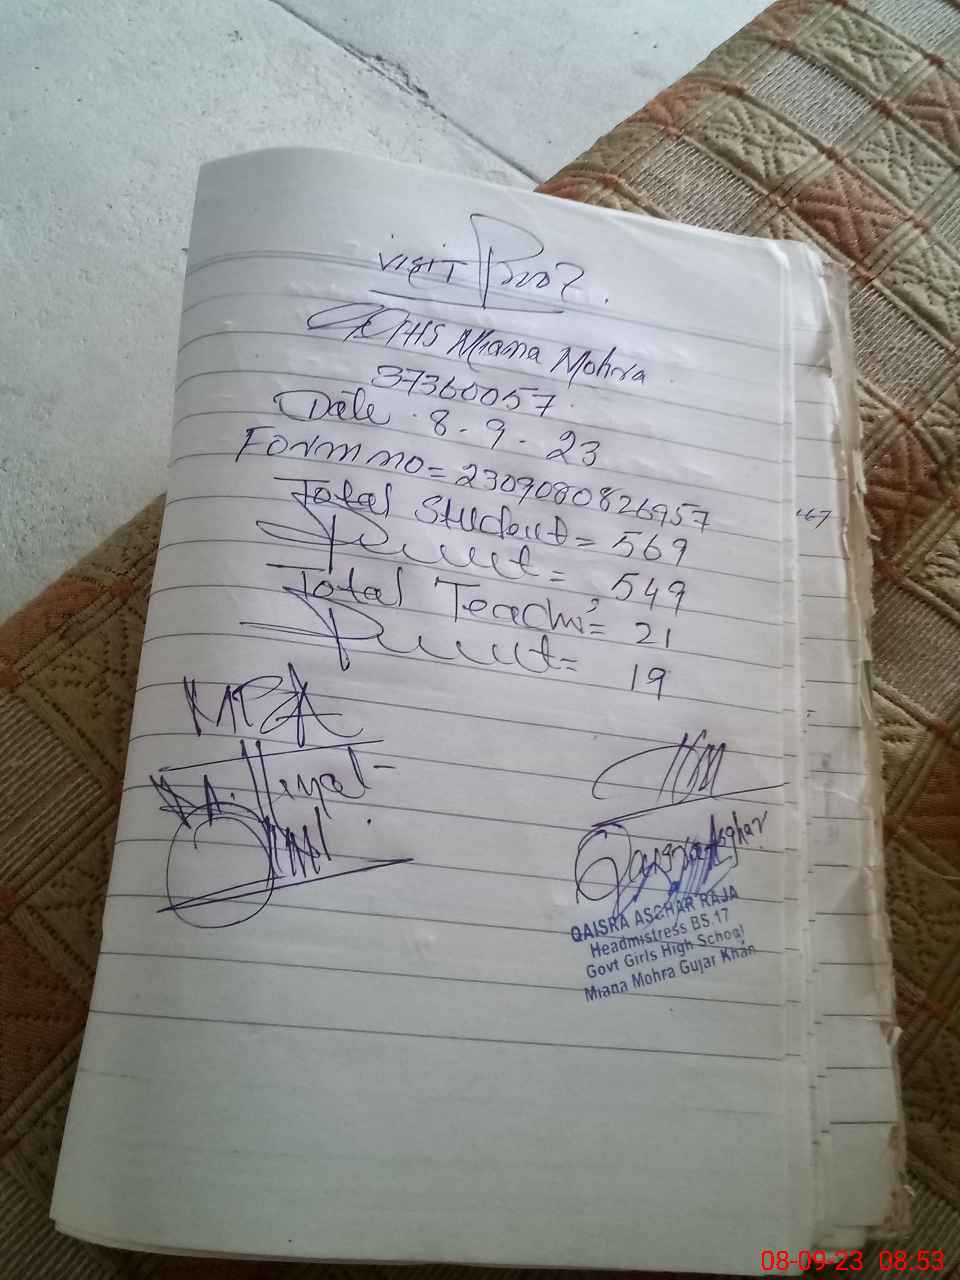 visit Proof.
GGHS Miana Mohra
37360057
Date 8-9-23
Form no = 2309080826957
Total Student = 569
Present = 549
Total Teacher = 21
Present = 19
MEA
HM
Qaisra Asghar
QAISRA ASGHAR RAJA
Headmistress BS.17
Govt Girls High School
Miana Mohra Gujar Khan
08-09-23 08:53